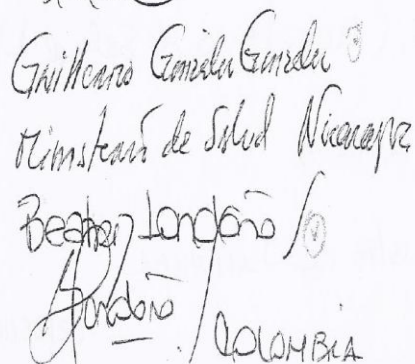 Guillermo González González
Ministerio de Salud Nicaragua
Beatriz Londoño
Londoño
COLOMBIA